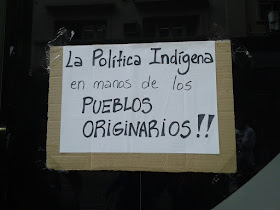 La Política Indígena
en manos de los
PUEBLOS
ORIGINARIOS!!